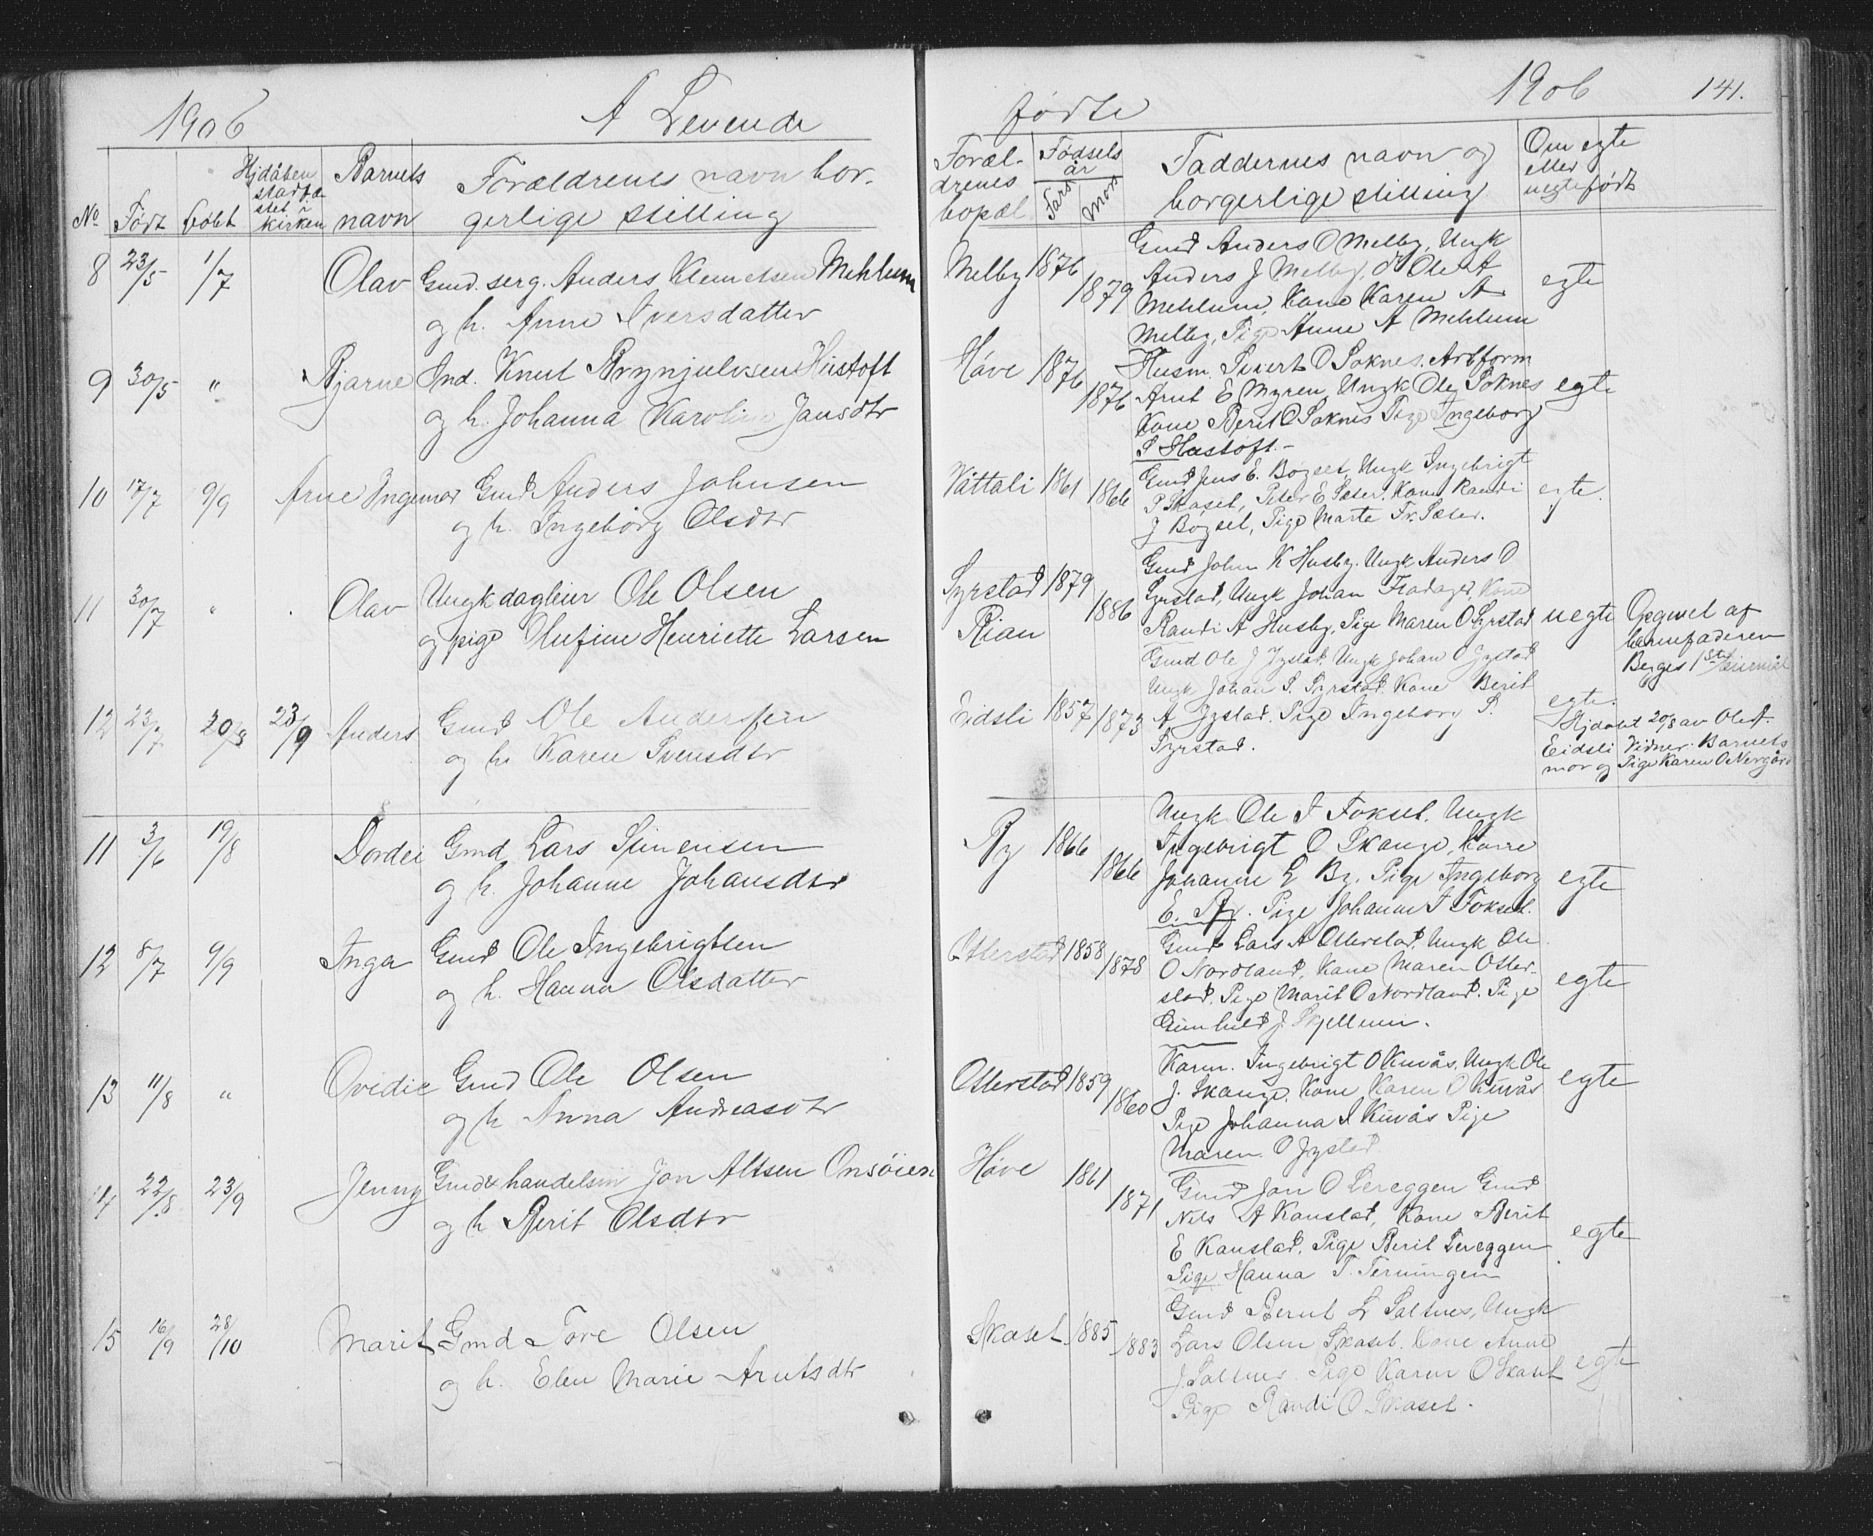 1906 A Levende
fødte 1906 141.
No Født Døbt Hjdåben stadfæ stet i kirken Barnets navn Forældrenes navn bor-
gerlige stilling
Foræl-
drenes
bopæl
Fødsels
år
Fars Mors
Faddernes navn og
borgerlige stilling
Om egte
eller
uegte født
8 23/5 1/7 Olav Gmd. serg. Anders Clemetsen Mehlum
og h. Anne Iversdatter
Melby 1876 1879
Gmd Anders O Melby, Ungk
Anders J Melby, Ole A
Mehlum, Kone Karen A
Melby, Pige Anne A Mehlum
egte
9 30/5 " Bjarne Ind. Knut Brynjulvsen Hustoft
og h. Johanna Karoline Jansdtr
Høve 1876 1876
Husm. Sivert O Soknes. Arbform
Arnt E Myren, Ungk Ole Soknes
Kone Berit O Soknes Pige Ingeborg
S Hustoft.-
egte
10 17/7 9/9 Arne Ingemar Gmd Anders Johnsen
og h. Ingeborg Olsdtr
Våttali 1861 1866
Gmd Jens E. Bogset, Ungk Ingebrigt
P Skaset, Peter E Sæter. Kone Randi
J Bogset, Pige Marte Fr. Sæter.
egte.
11 30/7 " Olav Ungk dagleier Ole Olsen
og pige Olufine Henriette Larsen
Syrstad
Rian
1879 1886
Gmd John K Husby. Ungk Anders O
Syrstad, Ungk Johan Fradager, Kone
Randi A Husby, Pige Maren O Syrstad
uegte
Opgivet af
barnefaderen
Begges 1ste leiermål
12 23/7 20/8 23/9 Anders Gmd Ole Andersen
og h. Karen Svensdtr
Eidsli 1857 1873
Gmd Ole J Jystad. Ungk Johan O Jystad
Ungk Johan S. Syrstad. Kone Berit
A Jystad. Pige Ingeborg S.
Syrstad.
egte.
Hjdøbt 20/8 av Ole A
Eidsli Vidner. Barnets
mor og Pige Karen O Nergård
11 3/6 19/8 Dordei Gmd Lars Simensen
og h. Johanne Johansdtr
By 1866 1866
Ungk Ole I Fokset. Ungk
Ingebrigt O Skauge, Kone
Johanne E By. Pige Ingeborg
E. By. Pige Johanne I Fokset.
egte
12 8/7 9/9 Inga Gmd Ole Ingebrigtsen
og h. Hanna Olsdatter
Otterstad 1858 1878
Gmd Lars A Otterstad. Ungk Ole
O Nordland, Kone Maren Otter-
stad. Pige Marit O Nordland. Pige
Gunhild J. Skjellum.
egte
13 11/8 " Ovidie Gmd Ole Olsen
og h Anna Andreasdtr
Otterstad 1859 1860
Karen. Ingebrigt O Kuvås, Ungk Ole
J. Skauge. Kone Karen O Kuvås
Pige Johanna I Kuvås Pige
Maren O Jystad.
egte
14 22/8 23/9 Jenny Gmd & handelsm Jon Altsen Onsøien
og h Berit Olsdtr
Høve 1861 1871
Gmd Jon O Lereggen Gmd
Nils A Kanstad, Kone Berit
E Kanstad. Pige Berit Lereggen
Pige Hanna T. Terningen
egte
15 16/9 28/10 Marit Gmd Tore Olsen
og h. Elen Marie Arntsdtr
Skaset 1885 1883
Gmd Bernt L Saltnes, Ungk
Lars Olsen Skaset. Kone Anne
J. Saltnes Pige Karen O Skaset
Pige Randi O. Skaset.
egte